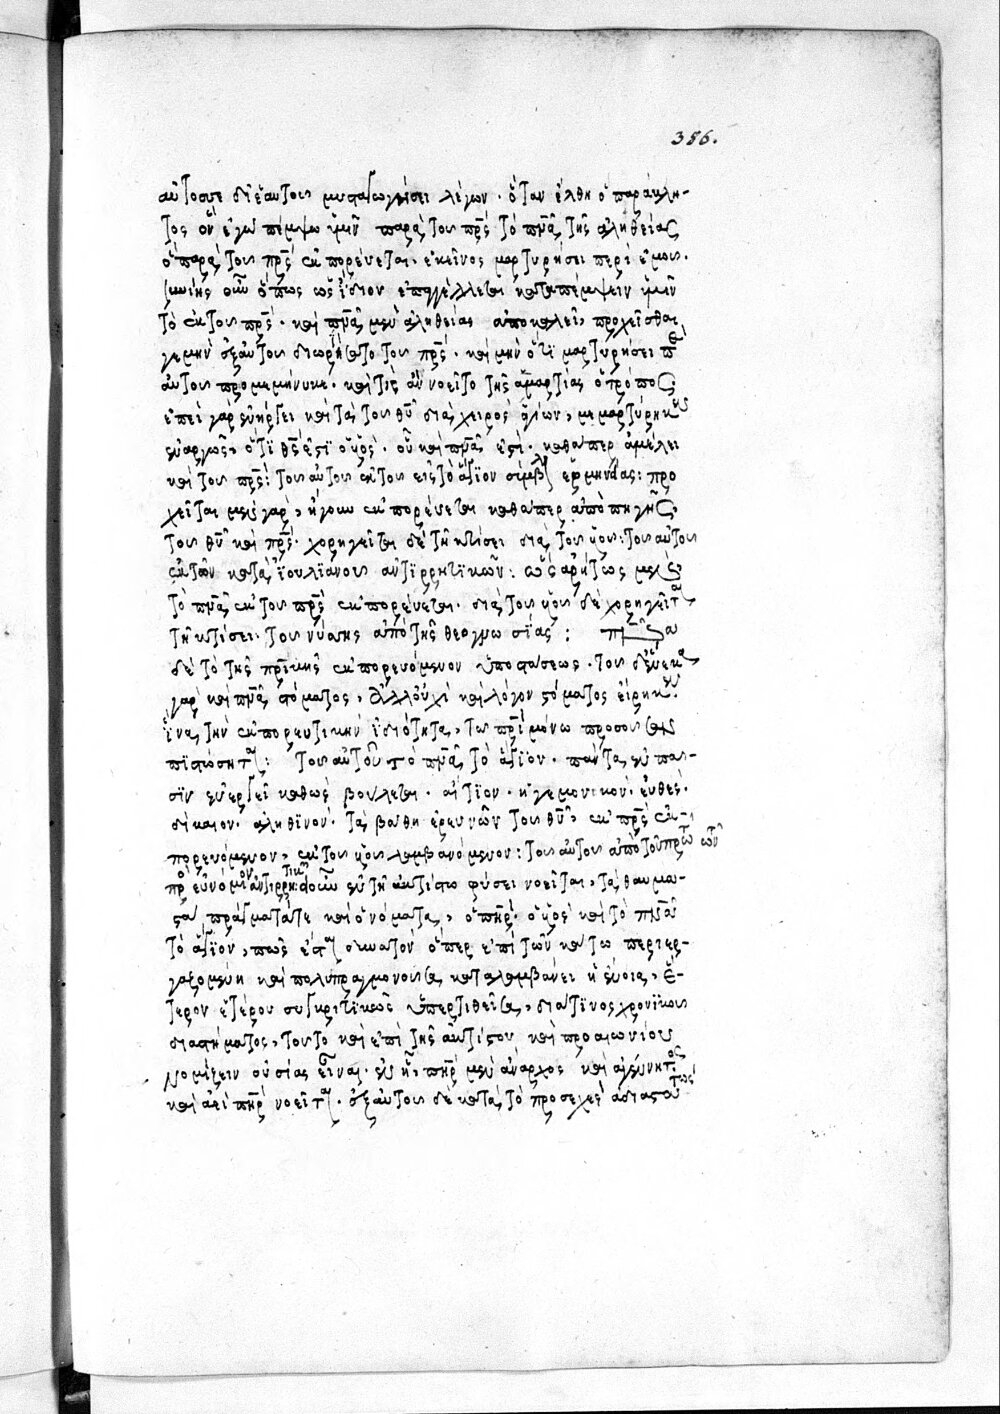 386.
αὐτὸς γε δι' ἑαυτοῦ μυσταγωγήσει λέγων· ὅταν ἔλθη ὁ παράκλη-
τος ὃν ἐγὼ πέμψω ὑμῖν παρὰ τοῦ πρς τὸ πνα τῆς ἀληθείας
ὃ παρὰ τοῦ πρς ἐκπορεύεται· ἐκεῖνος μαρτυρήσει περὶ ἐμοῦ.
οὖν ὅπως ὡς ἴδιον ἐπαγγέλλεται καταπέμψειν ἡμῖν
τὸ ἐκ τοῦ πρς· καὶ πνα μὲν ἀληθείας ἀποκαλεῖ, προχεῖσθαι
γε μὴν ἐξ αὐτοῦ διωρίσατο τοῦ πρς· καὶ μὴν ὅτι μαρτυρήσει περὶ
αὐτοῦ προμεμήνυκε· καὶ τίς ἂν νοεῖτο τῆς μαρτυρίας ὁ τρόπος
ἐπεὶ γὰρ ἐνήργει καὶ τὰ τοῦ θυ διὰ χειρὸς ἁγίων, μεμαρτύρηκεν
ἐναργῶς, ὅτι θς ἐστι ὁ υς· οὗ καὶ πνα ἐστὶ· καθάπερ ἀμέλει
καὶ τοῦ πρς: τοῦ αὐτοῦ ἐκ τοῦ εἰς τὸ ἅγιον σύμβολον ἑρμηνείας: προ
χεῖται μὲν γὰρ, ἤγουν ἐκπορεύεται καθάπερ ἀπὸ πηγῆς
τοῦ θυ καὶ πρς· χορηγεῖται δὲ τῆ κτίσει διὰ τοῦ υου: τοῦ αὐτοῦ
ἐκ τῶν κατὰ ἰουλιανοῦ ἀντιρρητικῶν: ὡς ἀρρήτως μὲν
τὸ πνα ἐκ τοῦ πρς ἐκπορεύεται· διὰ τοῦ υου δὲ χορηγεῖται
τῆ κτίσει· τοῦ νύσης ἀπὸ τῆς θεογνωσίας:
δὲ τὸ τῆς πρικῆς ἐκπορευόμενον ὑποστάσεως· τοῦ δ' ἕνεκα
γὰρ καὶ πνα στόματος, ἀλλ' οὐχὶ καὶ λόγον στόματος εἴρηκεν
ἵνα τὴν ἐκπορευτικὴν ἰδιότητα, τῶ πρὶ μόνω προσοῦσαν
πιστώσηται: τοῦ αὐτοῦ τὸ πνα τὸ ἅγιον· πάντα ἐν πα-
σιν ἐνεργεῖ καθὼς βούλεται· αἴτιον· ἡγεμονικὸν· εὐθὲς·
δίκαιον· ἀληθινὸν· τὰ βάθη ἐρευνῶν τοῦ θυ, ἐκ πρς ἐκ-
πορευόμενον, ἐκ τοῦ υου λαμβανόμενον: τοῦ αὐτοῦ ἀπὸ τοῦ πρώτου τῶν
πρὸς εὐνόμιον ἀντιρρητικῶν ἐν τῆ ἀκτίστω φύσει νοεῖται, τὰ θαυμα-
στὰ πράγματά τε καὶ ὀνόματα, ὁ πηρ· ὁ υς καὶ τὸ πνα
τὸ ἅγιον, πῶς ἐστι δυνατὸν ὅπερ ἐπὶ τῶν κάτω περιερ-
γαζομένη καὶ πολυπραγμονοῦσα καταλαμβάνει ἡ ἔννοια, ἕ-
τερον ἑτέρου συγκριτικῶς ὑπερτιθεῖσα, διά τινος χρονικοῦ
διαστήματος, τοῦτο καὶ ἐπὶ τῆς ἀκτίστου καὶ προαιωνίου
νομίζειν οὐσίας εἶναι· ἐν ἧ, πηρ μὲν ἄναρχος καὶ ἀγέννητος
καὶ ἀεὶ πηρ νοεῖται· ἐξ αὐτοῦ δὲ κατὰ τὸ προσεχὲς ἀδιαστάτως